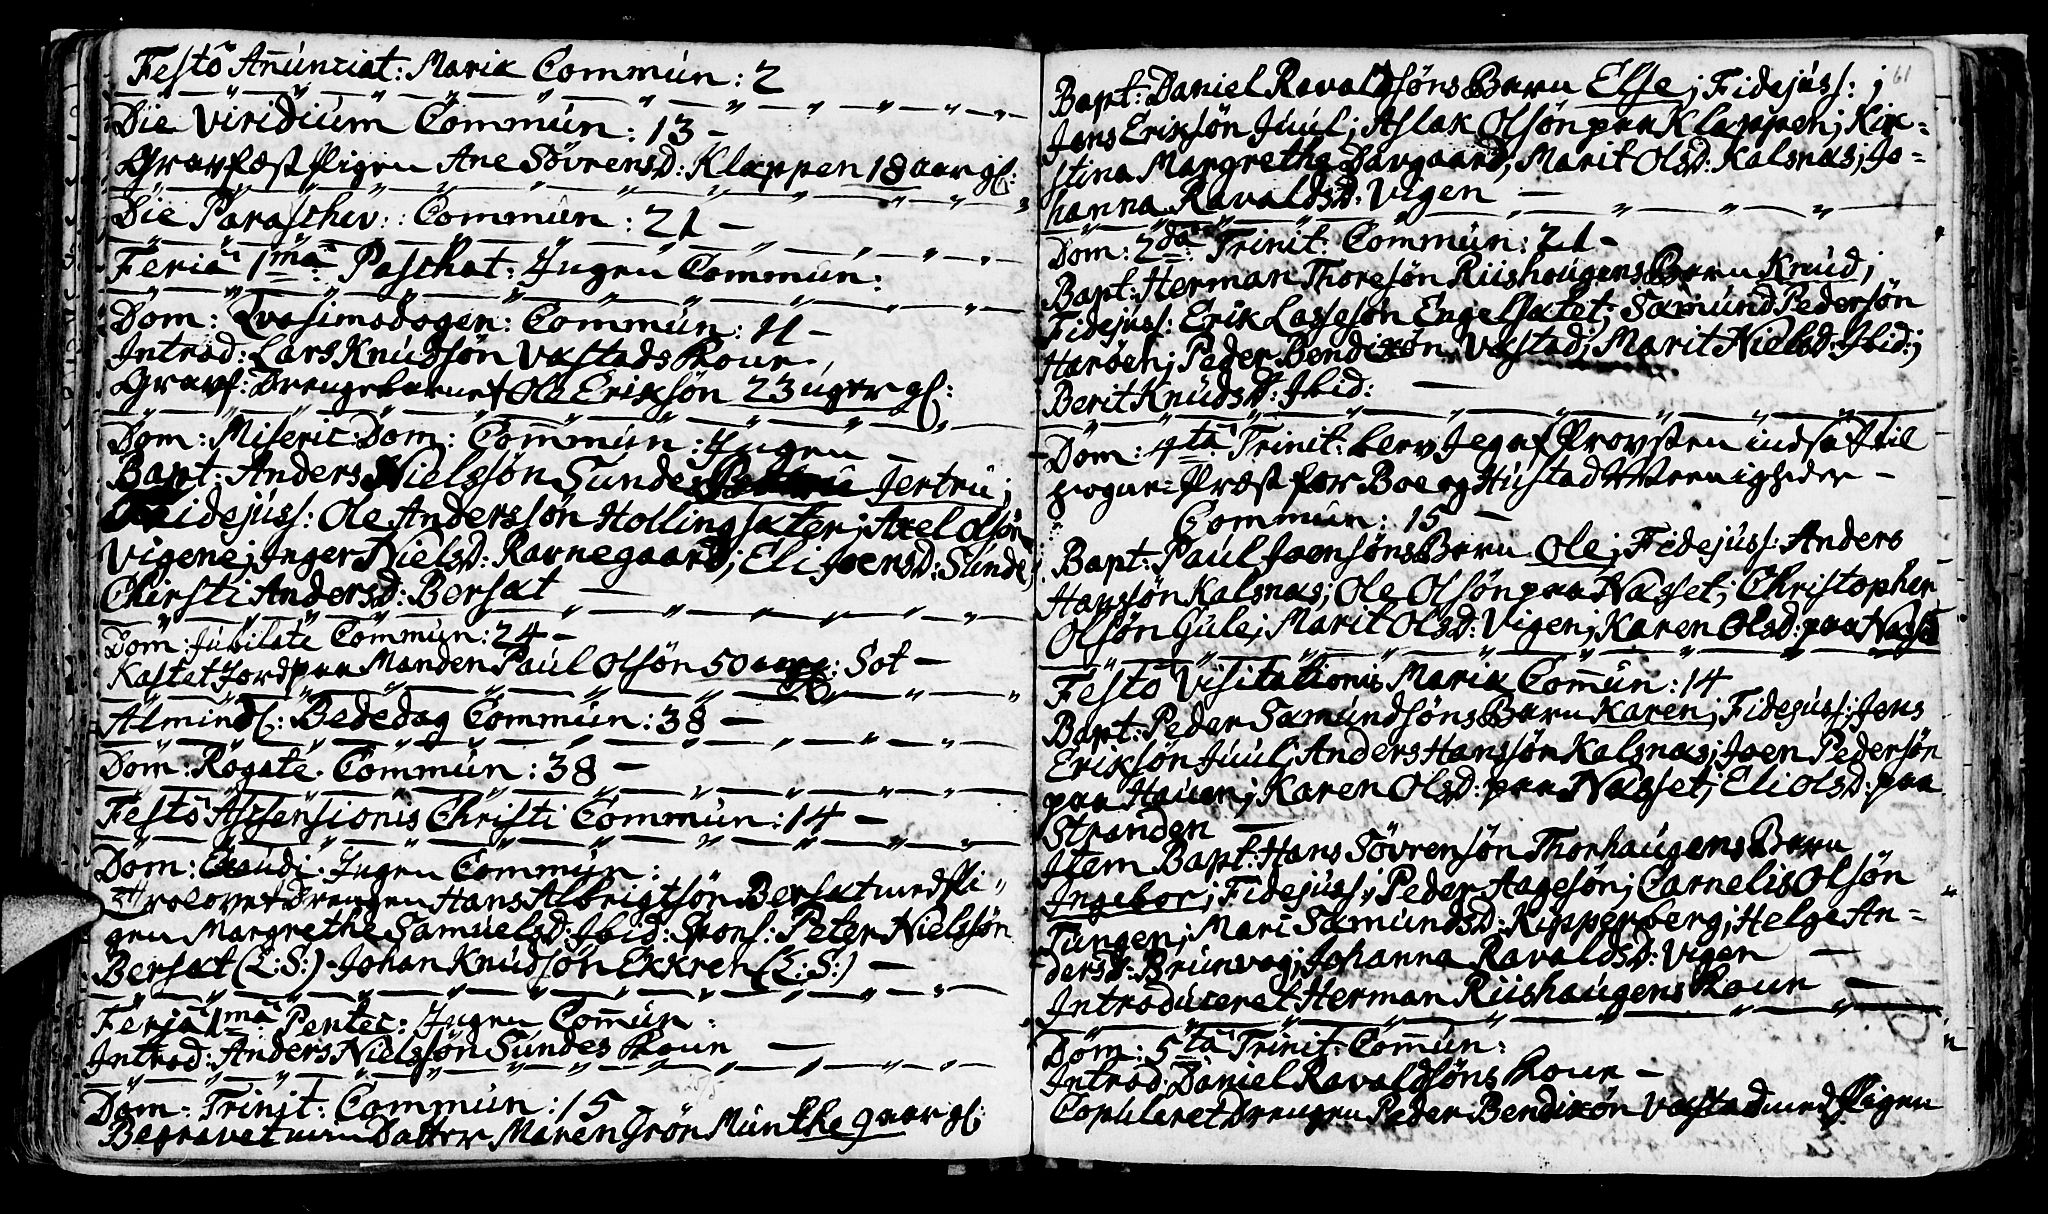 Festo Anunciat: Mariæ Commun: 2
Die Viridium Commun: 13 -
Gravfæst Pigen Ane Sövrensd: Klappen 18 aar gl:
Die Paraschev: Commun: 21 -
Feria 1ma Paschat: Ingen Commun:
Dom: Qvasimodogen: Commun: 11 -
Introd: Lars Knudsön Vastads Kone
Gravf: Drengebarnet Ole Eriksön 23 uger gl:
Dom: Miseric: Dom: Commun: Ingen -
Bapt: Anders Nielssön Sundes Jertru;
Fidejuss: Ole Anderssön Hollingsæter; Axel Olsön
Vigene; Inger Nielsd: Ravnegaard; Eli Joensd: Sunde;
Chirsti Andersd: Bersæt -
Dom: Jubilate Commun: 24 -
Kastet Jord paa Manden Paul Olsön 50 aar gl: Sot -
Almindl: Bededag Commun: 38 -
Dom: Rogate. Commun: 38 -
Festo Ascensionis Christi Commun: 14 -
Dom: Exaudi. Ingen Commun:
Trolovet Drengen Hans Albrigtsön Bersæt med Pi-
gen Margrethe Samuelsd: Ibid: Spons: Peter Nielssön
Bersæt (L:S:) Johan Knudsön Ekkren (L:S:) -
Feria 1ma Pentec: Ingen Comun:
Introd: Anders Nielssön Sundes Kone -
Dom: Trinit: Commun: 15
Begravet min Datter Maren Grön Munthe 9 aar gl:
61
Bapt: Daniel Ravaldsöns Barn Else; Fidejuss: ;
Jens Eriksön Juul; Aslak Olsön paa Klappen; Kir-
stina Margrethe Davgaard; Marit Olsd: Kalsnæs; Jo-
hanna Ravaldsd: Vigen -
Dom: 2da Trinit: Commun: 21 -
Bapt: Herman Thoresön Riishaugens Barn Knud;
Fidejuss: Erik Lassesön Engelsætet; Sæmund Pedersön
Haröen; Peder Bendixön Vastad; Marit Nielsd: Ibid:;
Berit Knudsd: Ibid: -
Dom: 4ta Trinit: blev Jeg af Provsten indsat til
Sogne-Præst for Boe og Hustad Meenigheder -
Commun: 15 -
Bapt: Paul Joensöns Barn Ole; Fidejuss: Anders
Hanssön Kalsnæs; Ole Olsön paa Næsset; Christopher
Olsön Gule; Marit Olsd: Vigen; Karen Olsd: paa Næsset
Festo Visitationis Mariæ Comun: 14
Bapt: Peder Sæmundsöns Barn Karen; Fidejuss: Jens
Eriksön Juul; Anders Hanssön Kalsnæs; Joen Pedersön
paa Hauen; Karen Olsd: paa Næsset; Eli Olsd: paa
Stranden -
Item Bapt: Hans Sövrensön Thorhaugens Barn
Ingebor; Fidejuss: Peder Aagesön; Carnelis Olsön
Tungen; Mari Sæmundsd: Kipperberg; Helge An-
dersd: Brunvog; Johanna Ravaldsd: Vigen -
Introduceret Herman Riishaugens Kone -
Dom: 5ta Trinit: Comun:
Introd: Daniel Ravaldsöns Kone -
Copuleret Drengen Peder Bendixön Vastad med Pigen